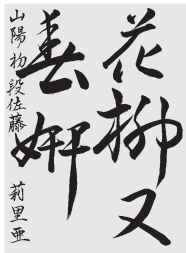 花柳又
春妍
山陽初段佐藤莉里亜